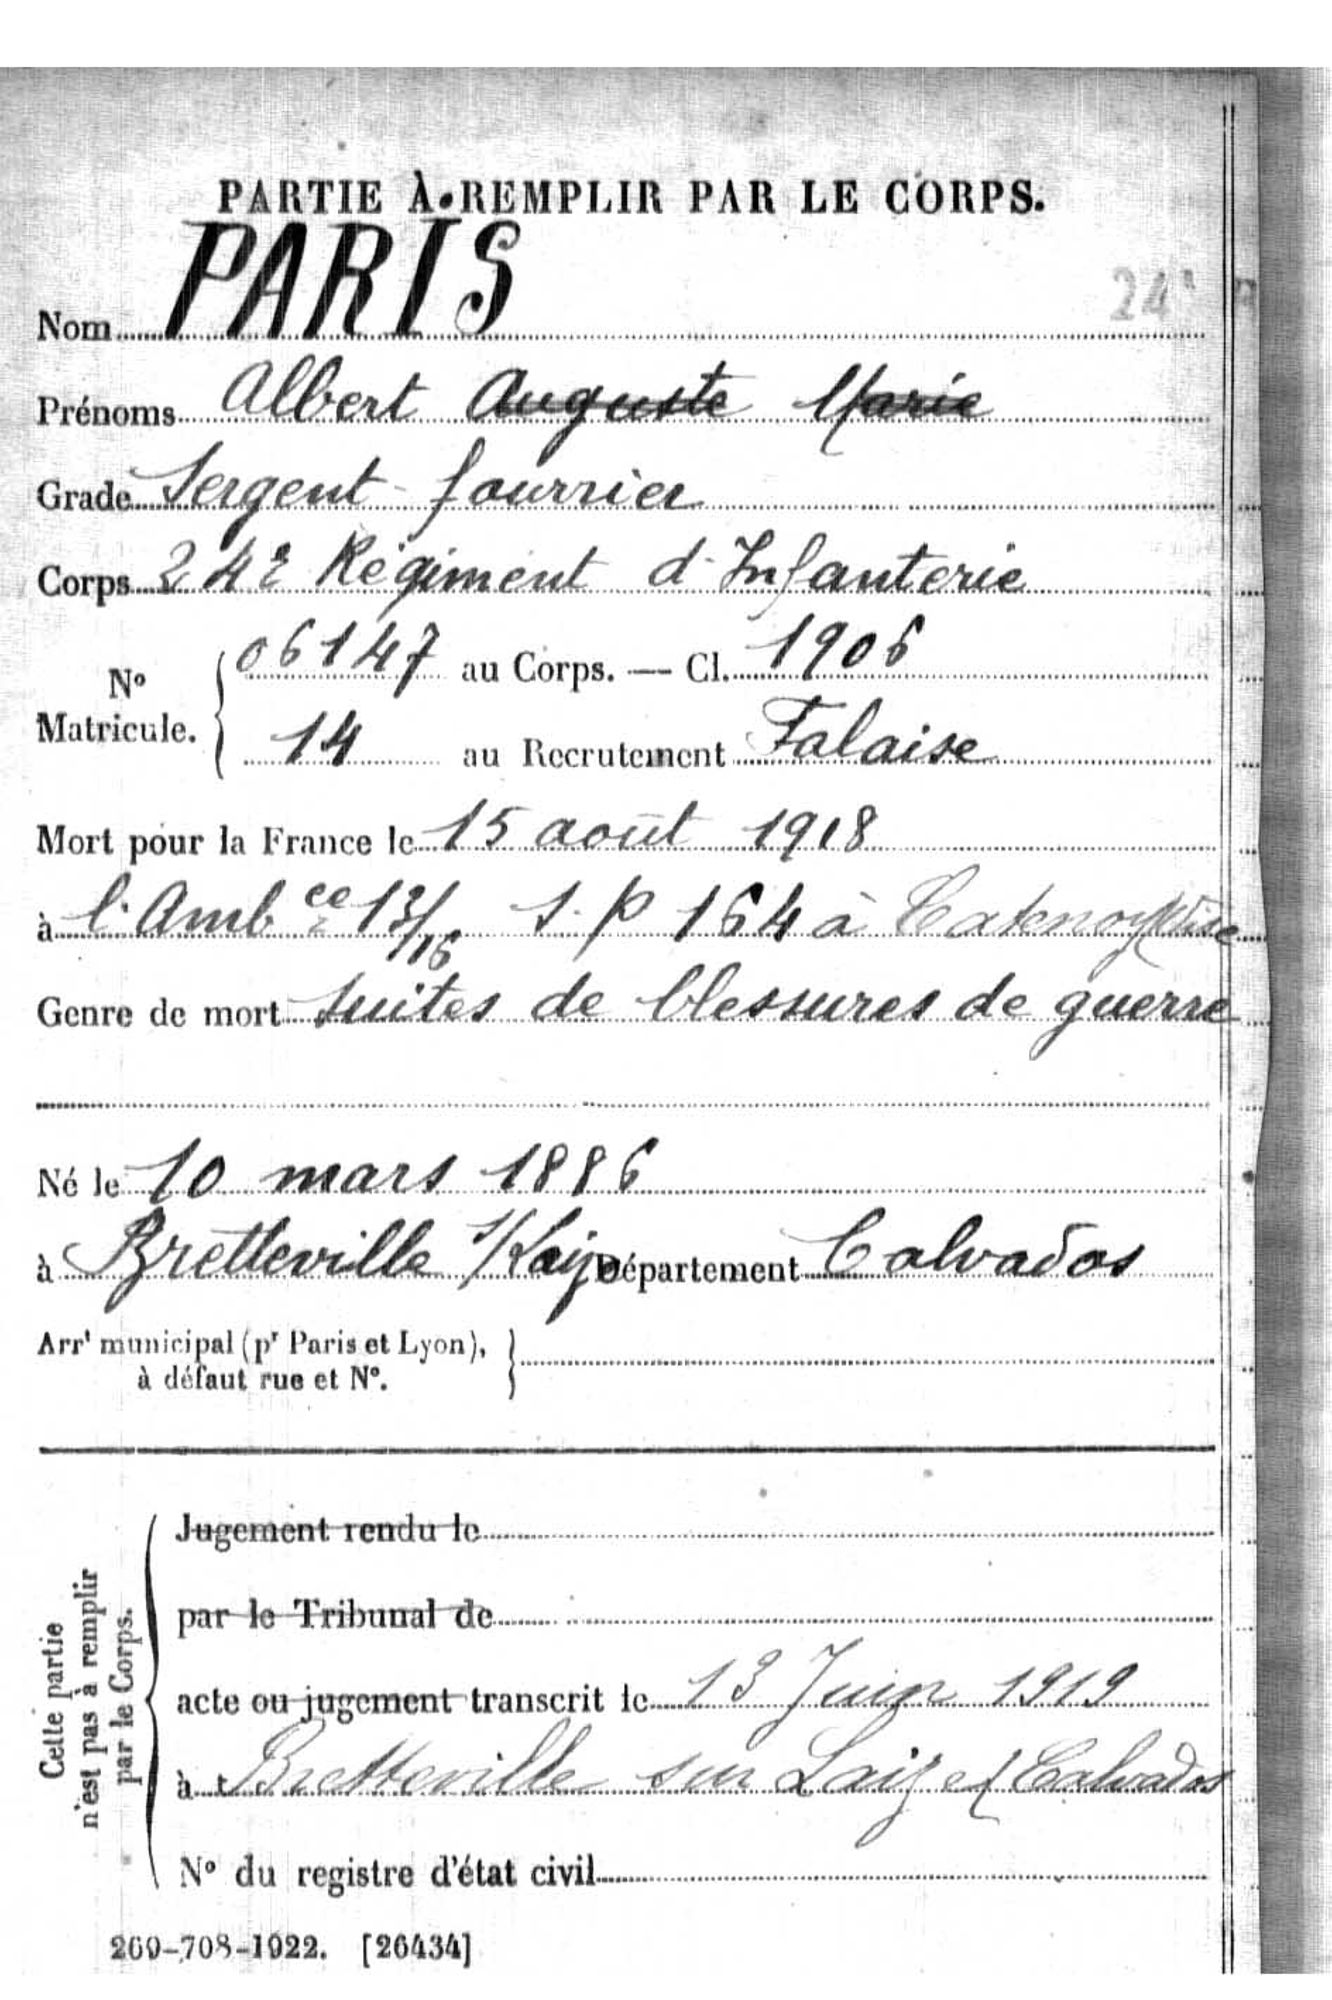 PARTIE À REMPLIR PAR LE CORPS.
Nom PARIS
24e
Prénoms Albert Auguste Marie
Grade Sergent-fourrier
Corps 24e Régiment d'Infanterie
No Matricule. { 06147 au Corps. — Cl. 1906
14 au Recrutement Falaise
Mort pour la France le 15 août 1918
à l'Ambce 13/16 S.P 164 à Catenoy Oise
Genre de mort suites de blessures de guerre
Né le 10 mars 1886
à Bretteville s/Laize Département Calvados
Arrt municipal (pr Paris et Lyon),
à défaut rue et No.
Cette partie
n'est pas à remplir
par le Corps.
Jugement rendu le
par le Tribunal de
acte ou jugement transcrit le 13 Juin 1919
à Bretteville sur Laize (Calvados
No du registre d'état civil
269-708-1922. [26434]